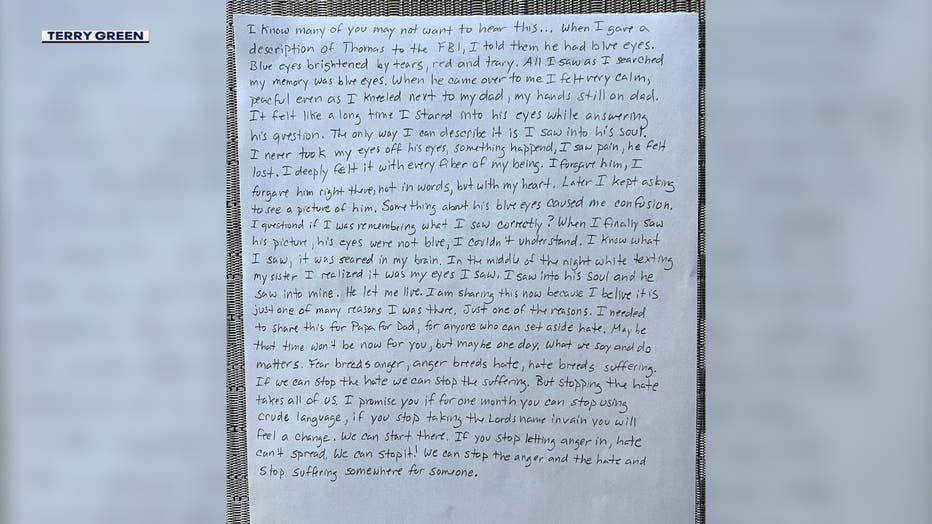 TERRY GREEN
I know many of you may not want to hear this... When I gave a
description of Thomas to the FBI, I told them he had blue eyes.
Blue eyes brightened by tears, red and trary. All I saw as I searched
my memory was blue eyes. When he came over to me I felt very calm,
peaceful even as I kneeled next to my dad, my hands still on dad.
It felt like a long time I stared into his eyes while answering
his question. The only way I can describe it is I saw into his soul.
I never took my eyes off his eyes, something happend, I saw pain, he felt
lost. I deeply felt it with every fiber of my being. I forgave him, I
forgave him right there, not in words, but with my heart. Later I kept asking
to see a picture of him. Something about his blue eyes caused me confusion.
I questiond if I was remembering what I saw correctly? When I finally saw
his picture, his eyes were not blue, I couldn't understand. I know what
I saw, it was seared in my brain. In the middle of the night while texting
my sister I realized it was my eyes I saw. I saw into his soul and he
saw into mine. He let me live. I am sharing this now because I belive it is
just one of many reasons I was there. Just one of the reasons. I needed
to share this for Papa for Dad, for anyone who can set aside hate. May be
that time won't be now for you, but maybe one day. What we say and do
matters. Fear breeds anger, anger breeds hate, hate breeds suffering.
If we can stop the hate we can stop the suffering. But stopping the hate
takes all of us. I promise you if for one month you can stop using
crude language, if you stop taking the Lords name in vain you will
feel a change. We can start there. If you stop letting anger in, hate
can't spread. We can stop it! We can stop the anger and the hate and
stop suffering somewhere for someone.